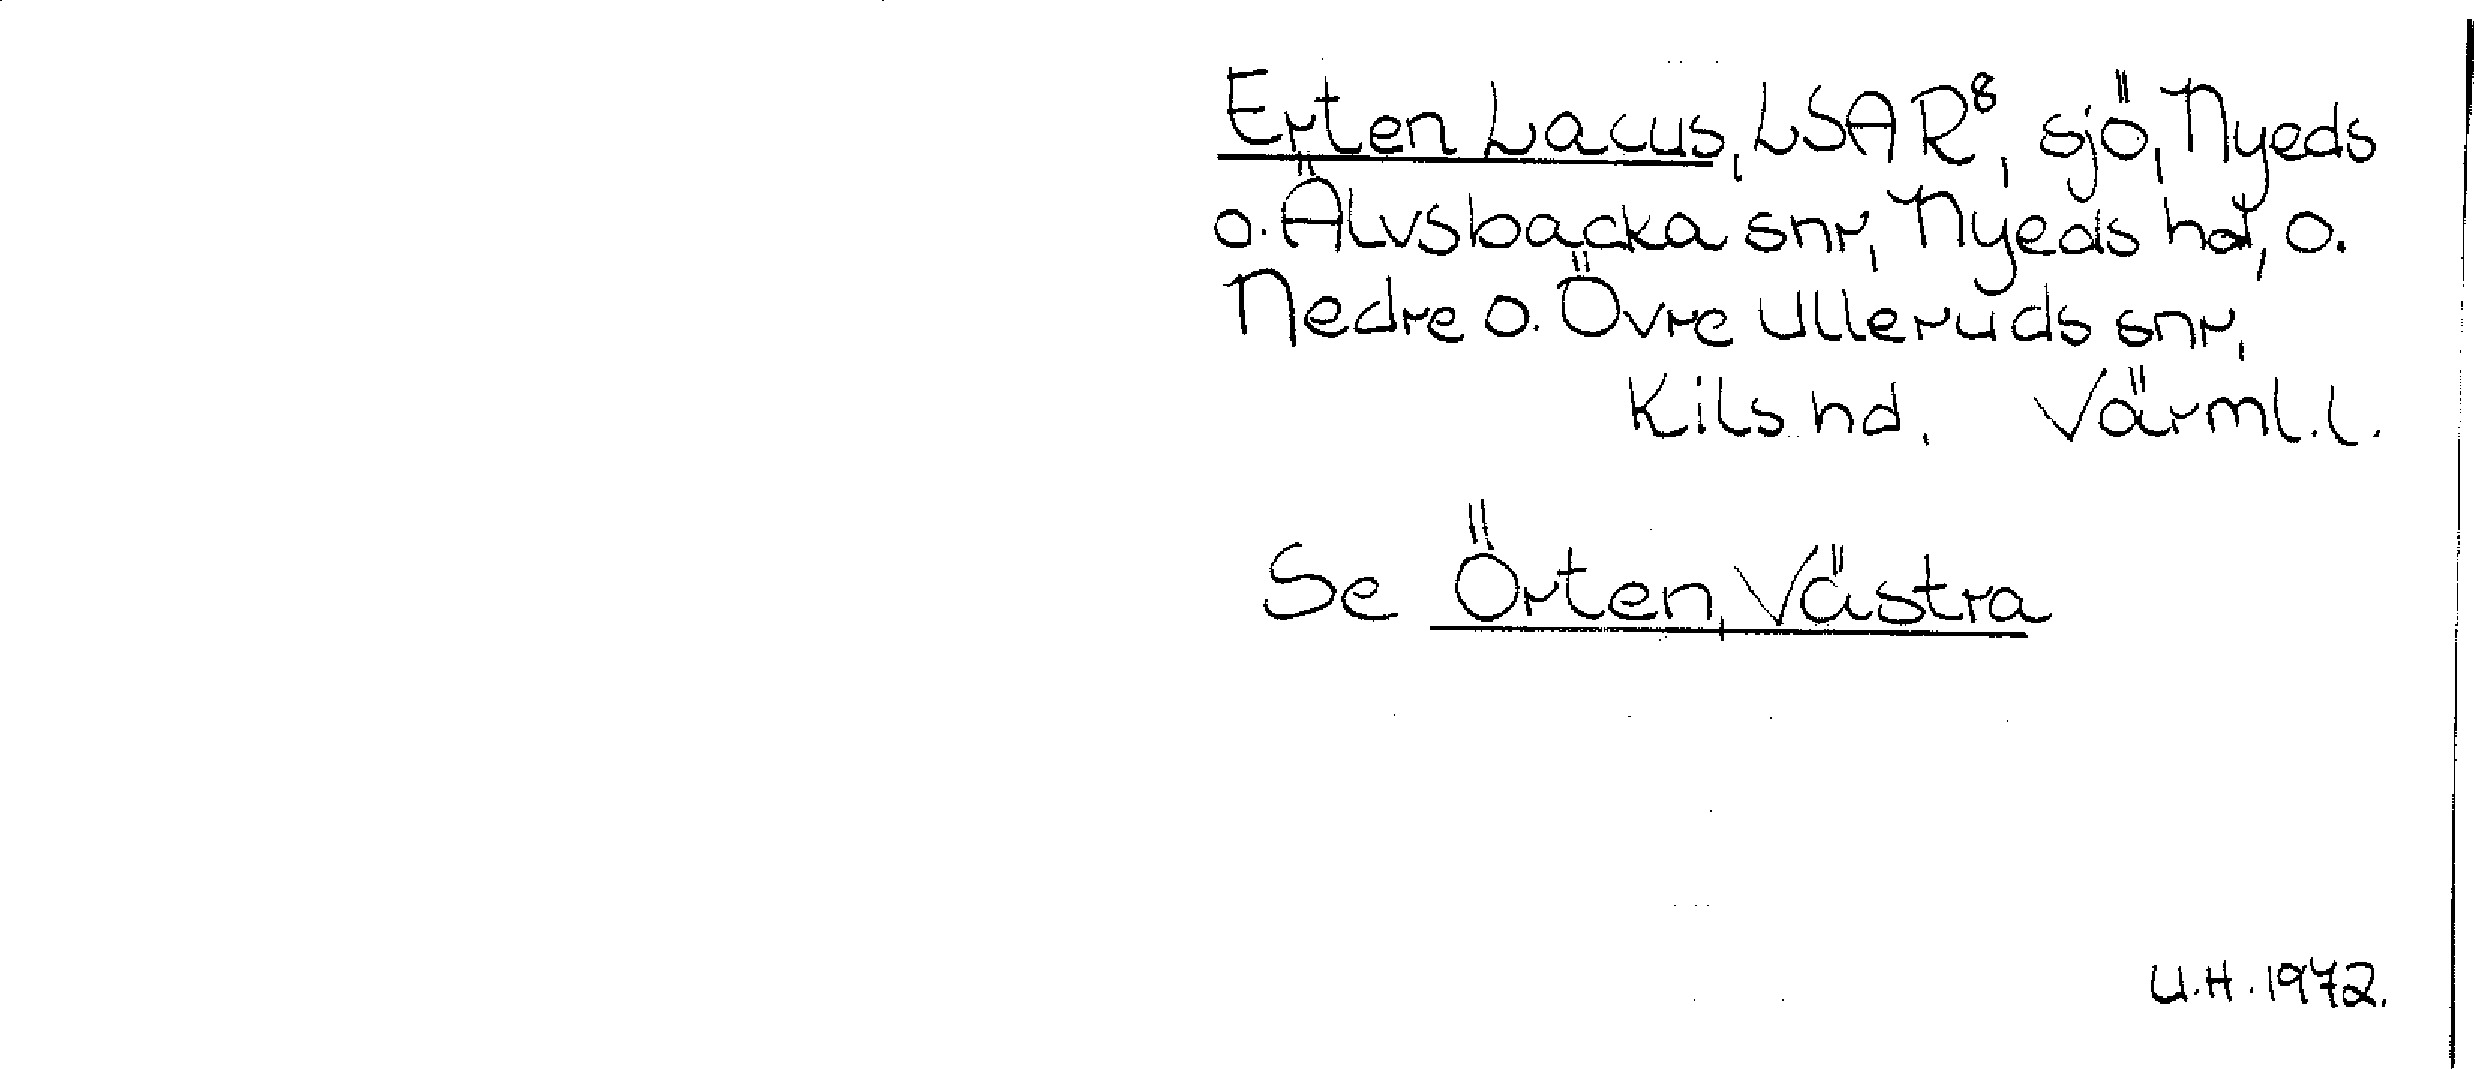 Erten Lacus, LSAR⁸, sjö, Nyeds
o. Älvsbacka snr, Nyeds hd, o.
Nedre o. Övre Ulleruds snr,
Kils hd. Värml. l.
Se Örten, Västra
U.H. 1972.